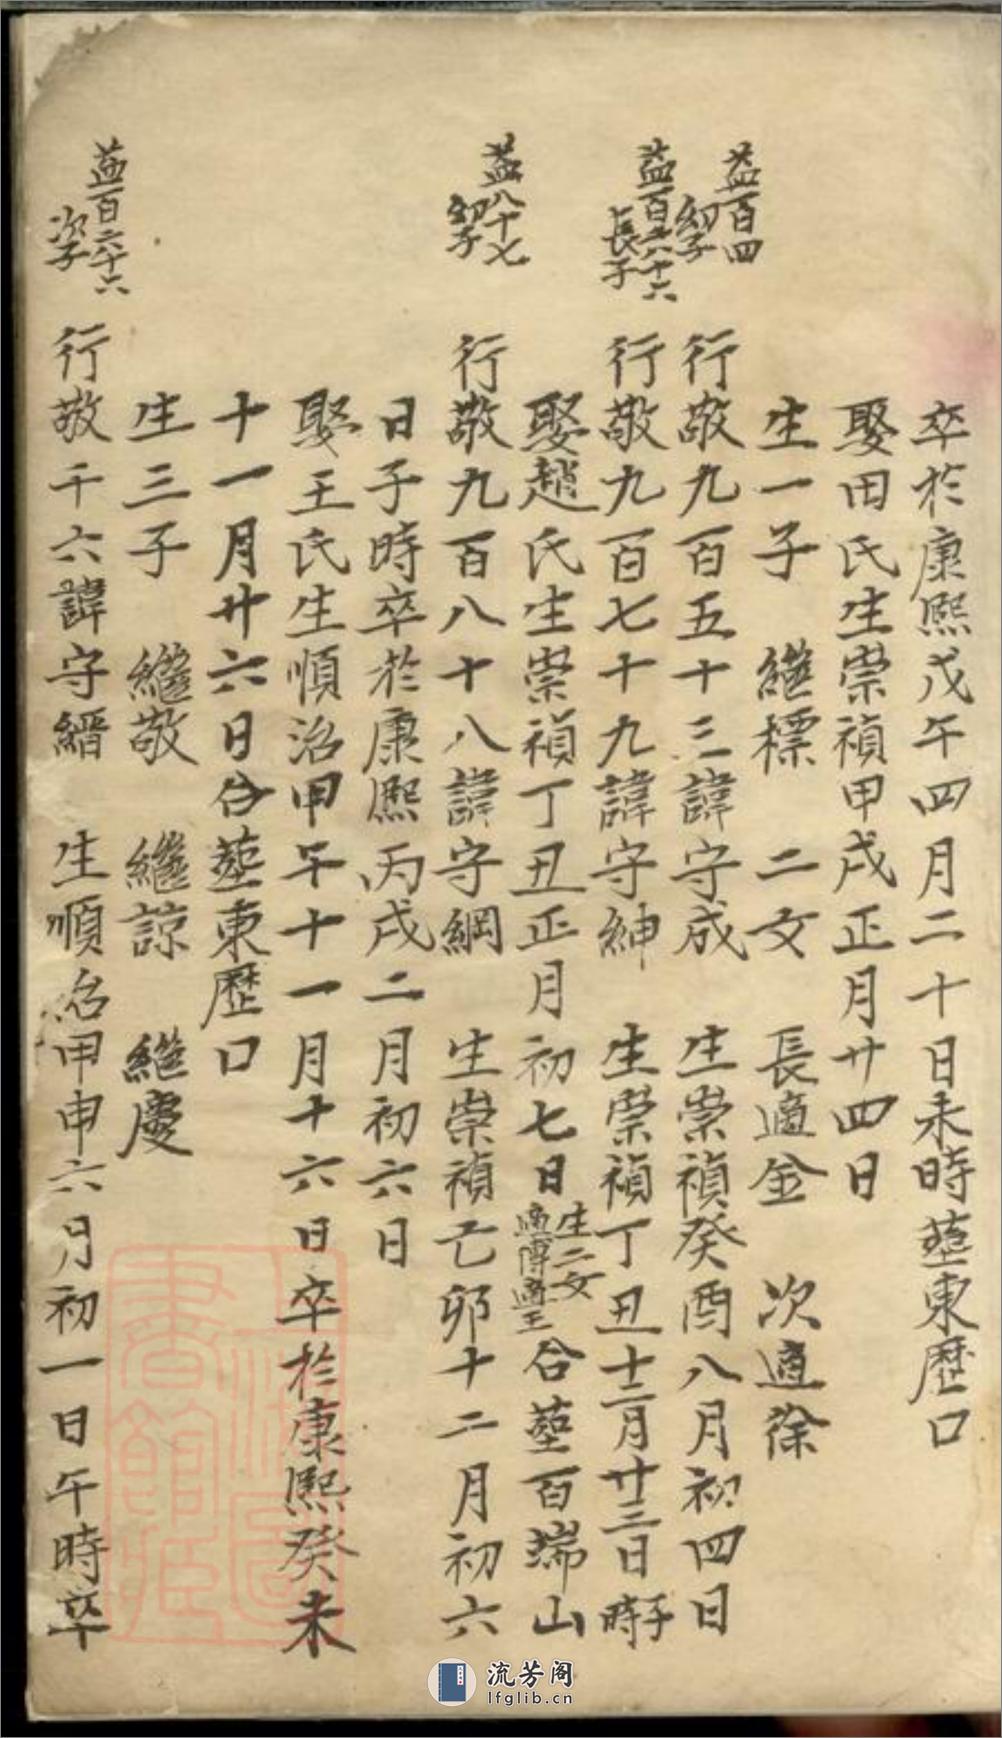 卒於康熙戊午四月二十日未時塟東歷口
娶田氏生崇禎甲戌正月廿四日
生一子 繼標 二女 長適金 次適徐
益百四
幼子
行敬九百五十三諱守成 生崇禎癸酉八月初四日
益百六十六
長子
行敬九百七十九諱守紳 生崇禎丁丑十二月廿三日子時
娶趙氏生崇禎丁丑正月初七日生二女適傅適王合塟百端山
益八十七
幼子
行敬九百八十八諱守綱 生崇禎己卯十二月初六
日子時卒於康熙丙戌二月初六日
娶王氏生順治甲午十一月十六日卒於康熙癸未
十一月廿六日合塟東歷口
生三子 繼敬 繼諒 繼慶
益百六十六
次子
行敬千六諱守縉 生順治甲申六月初一日午時卒
上海圖
書館藏
流芳阁
lfglib.cn